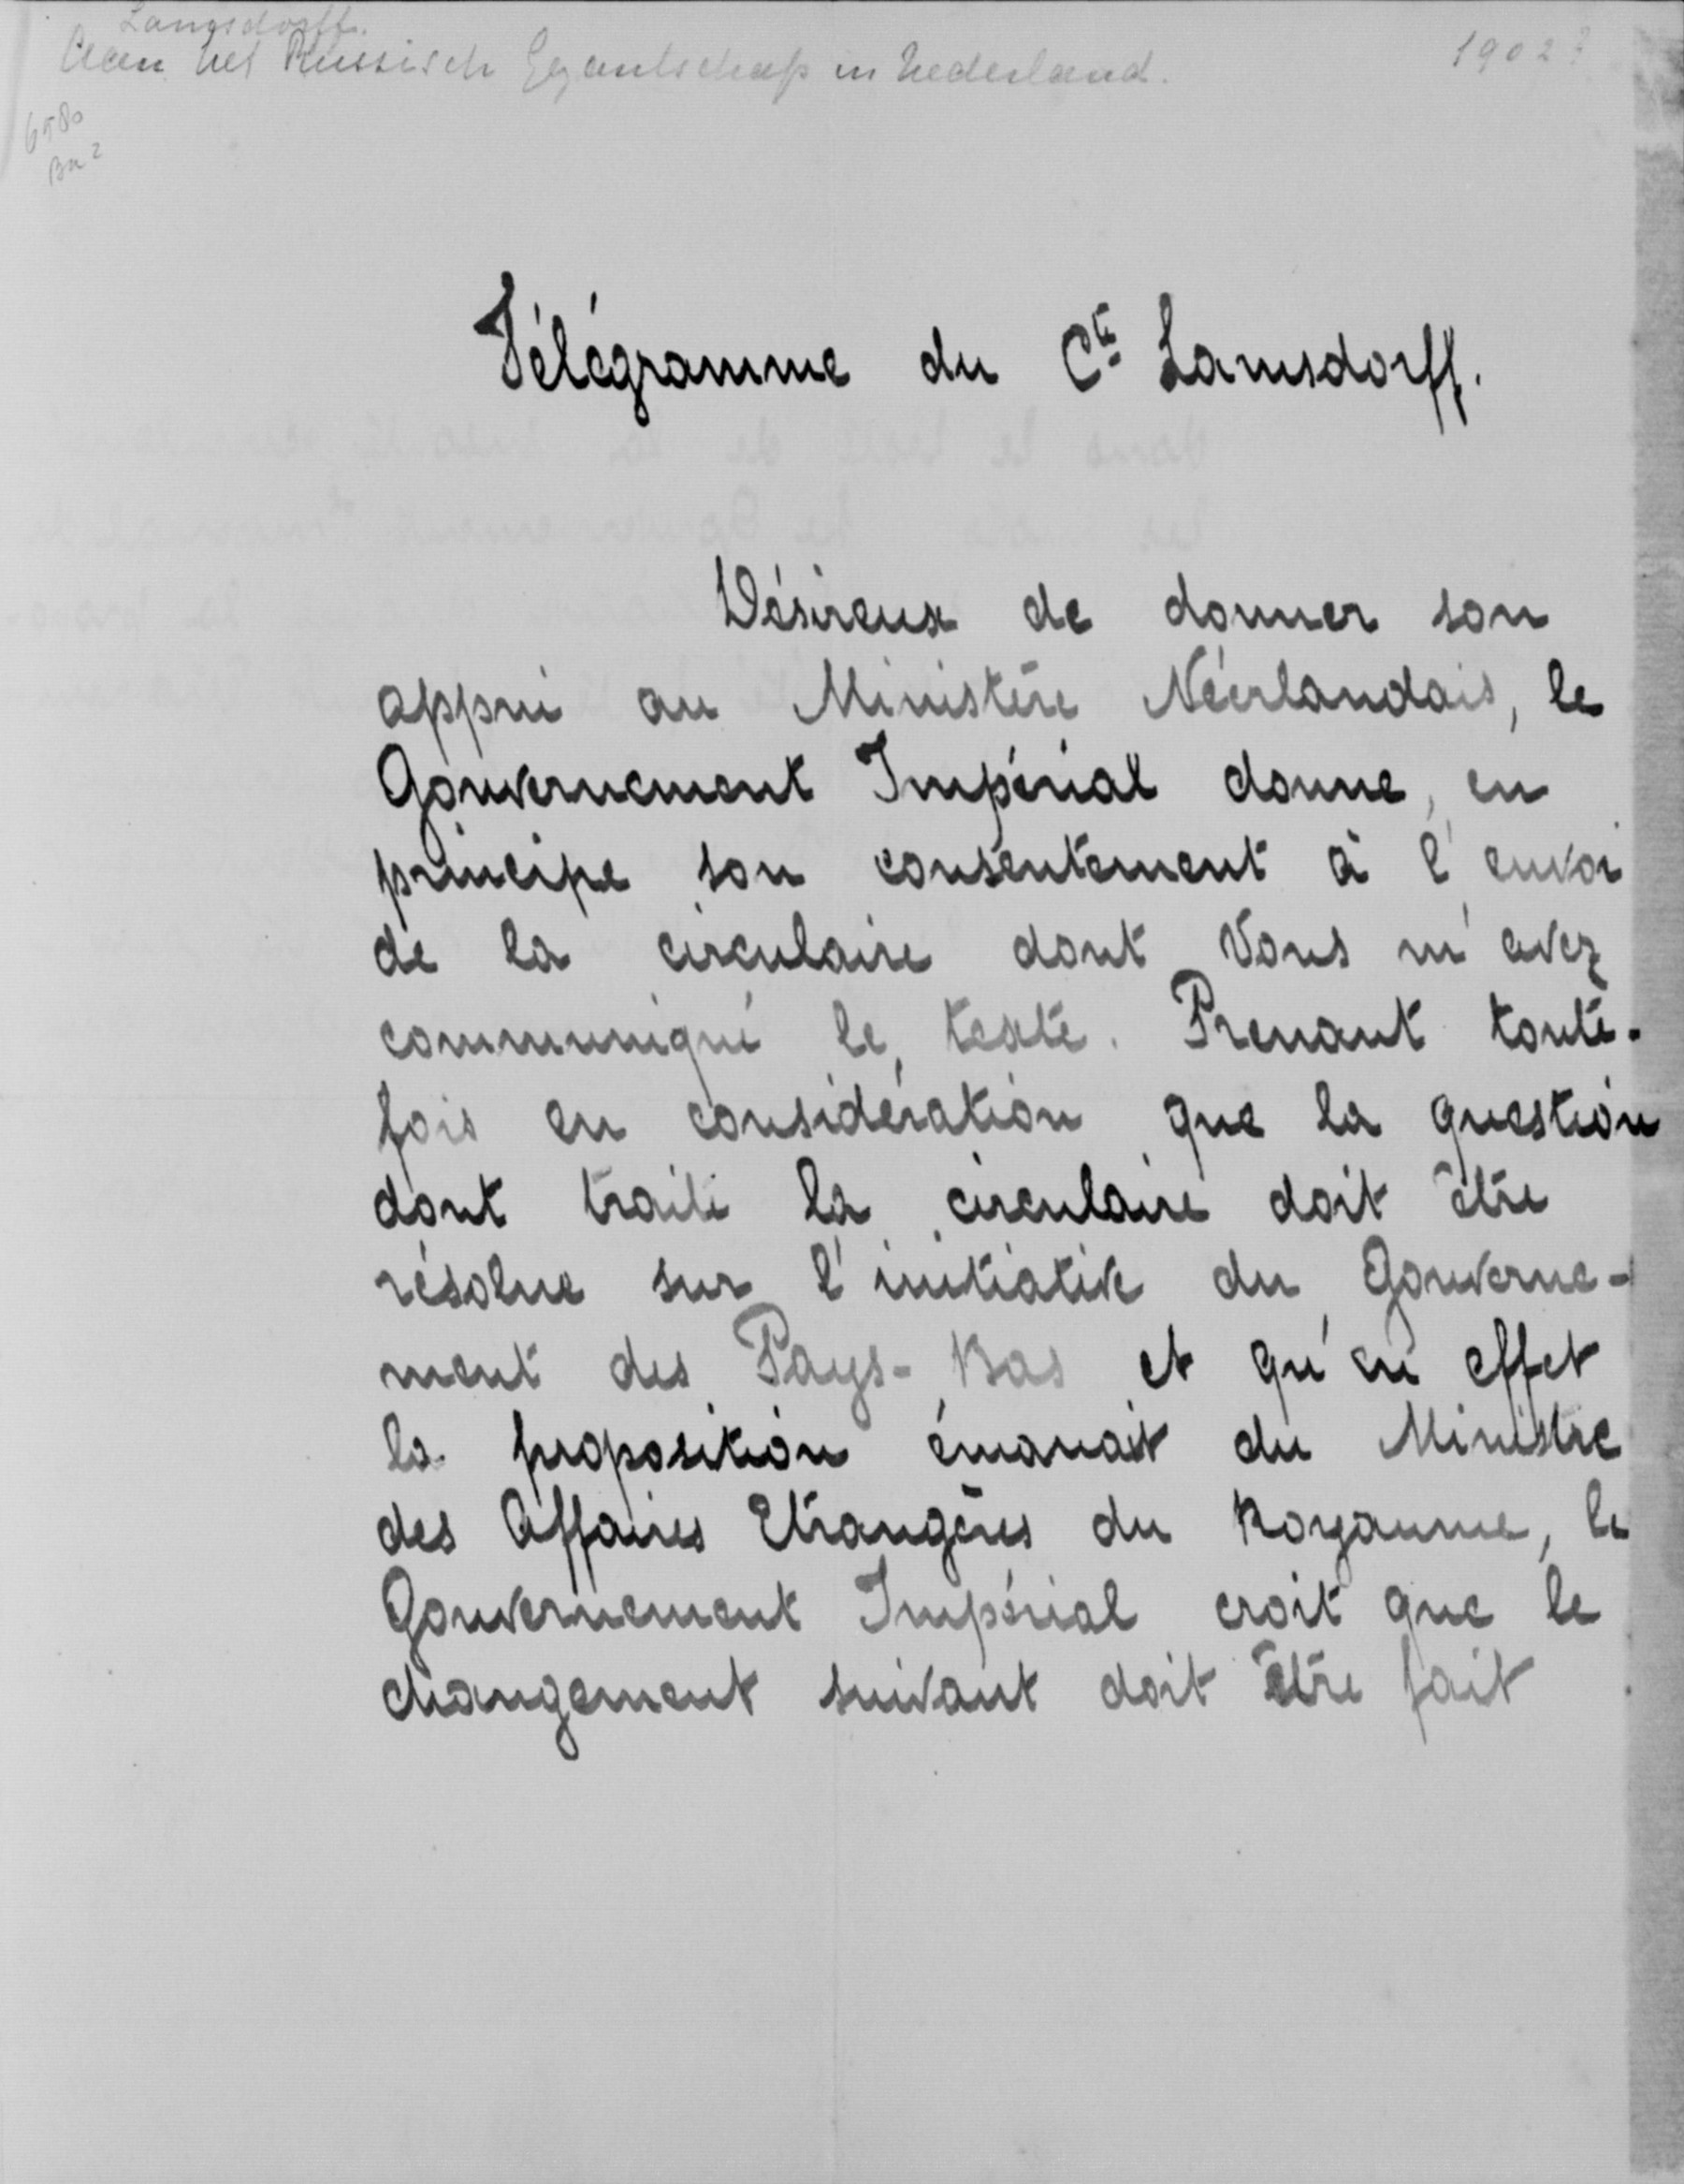 Langsdorff.
Aan het Russisch Gezantschap in Nederland.
1902?
6580
Bu 2
Télégramme du Cte Lamsdorff.
Désireux de donner son
appui au Ministère Néerlandais, le
Gouvernement Impérial donne, en
principe son consentement à l'envoi
de la circulaire dont Vous m'avez
communiqué le texte. Prenant toute-
fois en considération que la question
dont traite la circulaire doit être
résolue sur l'initiative du Gouverne-
ment des Pays-Bas et qu'en effet
la proposition émanait du Ministre
des Affaires Etrangères du Royaume, le
Gouvernement Impérial croit que le
changement suivant doit être fait